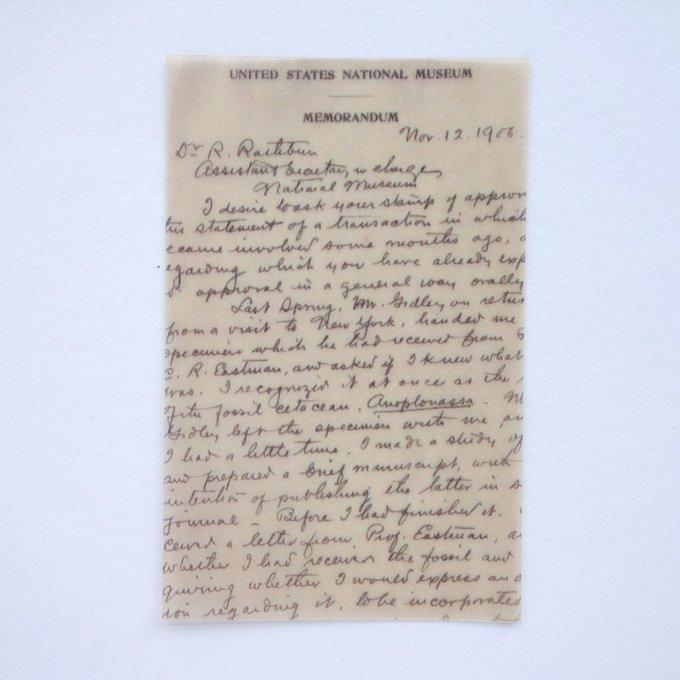 UNITED STATES NATIONAL MUSEUM
MEMORANDUM
Nov. 12. 1906.
Dr R. Rathbun
Assistant Secretary in charge
National Museum
I desire to ask your stamp of approv
this statement of a transaction in which
ecame involved some months ago,
egarding which you have already exp
approval in a general way orally
Last Spring, Mr. Gidley on retur
from a visit to New York, handed me
specimen which he had received from
C. R. Eastman, and asked if I knew what
was. I recognized it at once as the
of the fossil cetacean, Anoplonassa. M
Gidley left the specimen with me, an
I had a little time. I made a study of
and prepared a brief manuscript, with
intention of publishing the latter in s
journal - Before I had finished it,
ceived a letter from Prof. Eastman, a
whether I had received the fossil and
quiring whether I would express an o
ion regarding it, to be incorporated